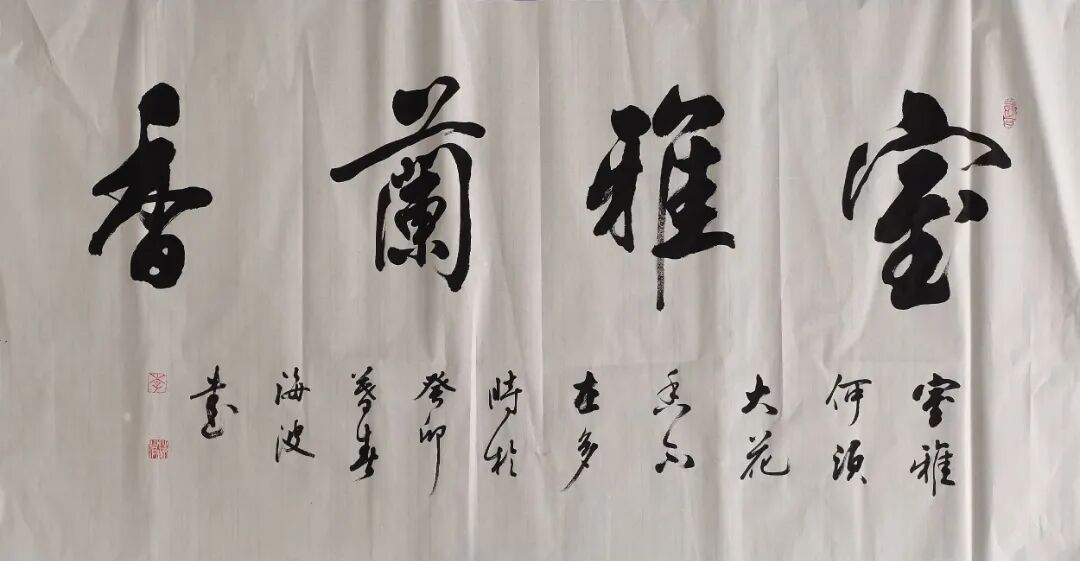 室雅蘭香
室雅
何須
大花
香不
在多
時於
癸卯
暮春
海波
書
李